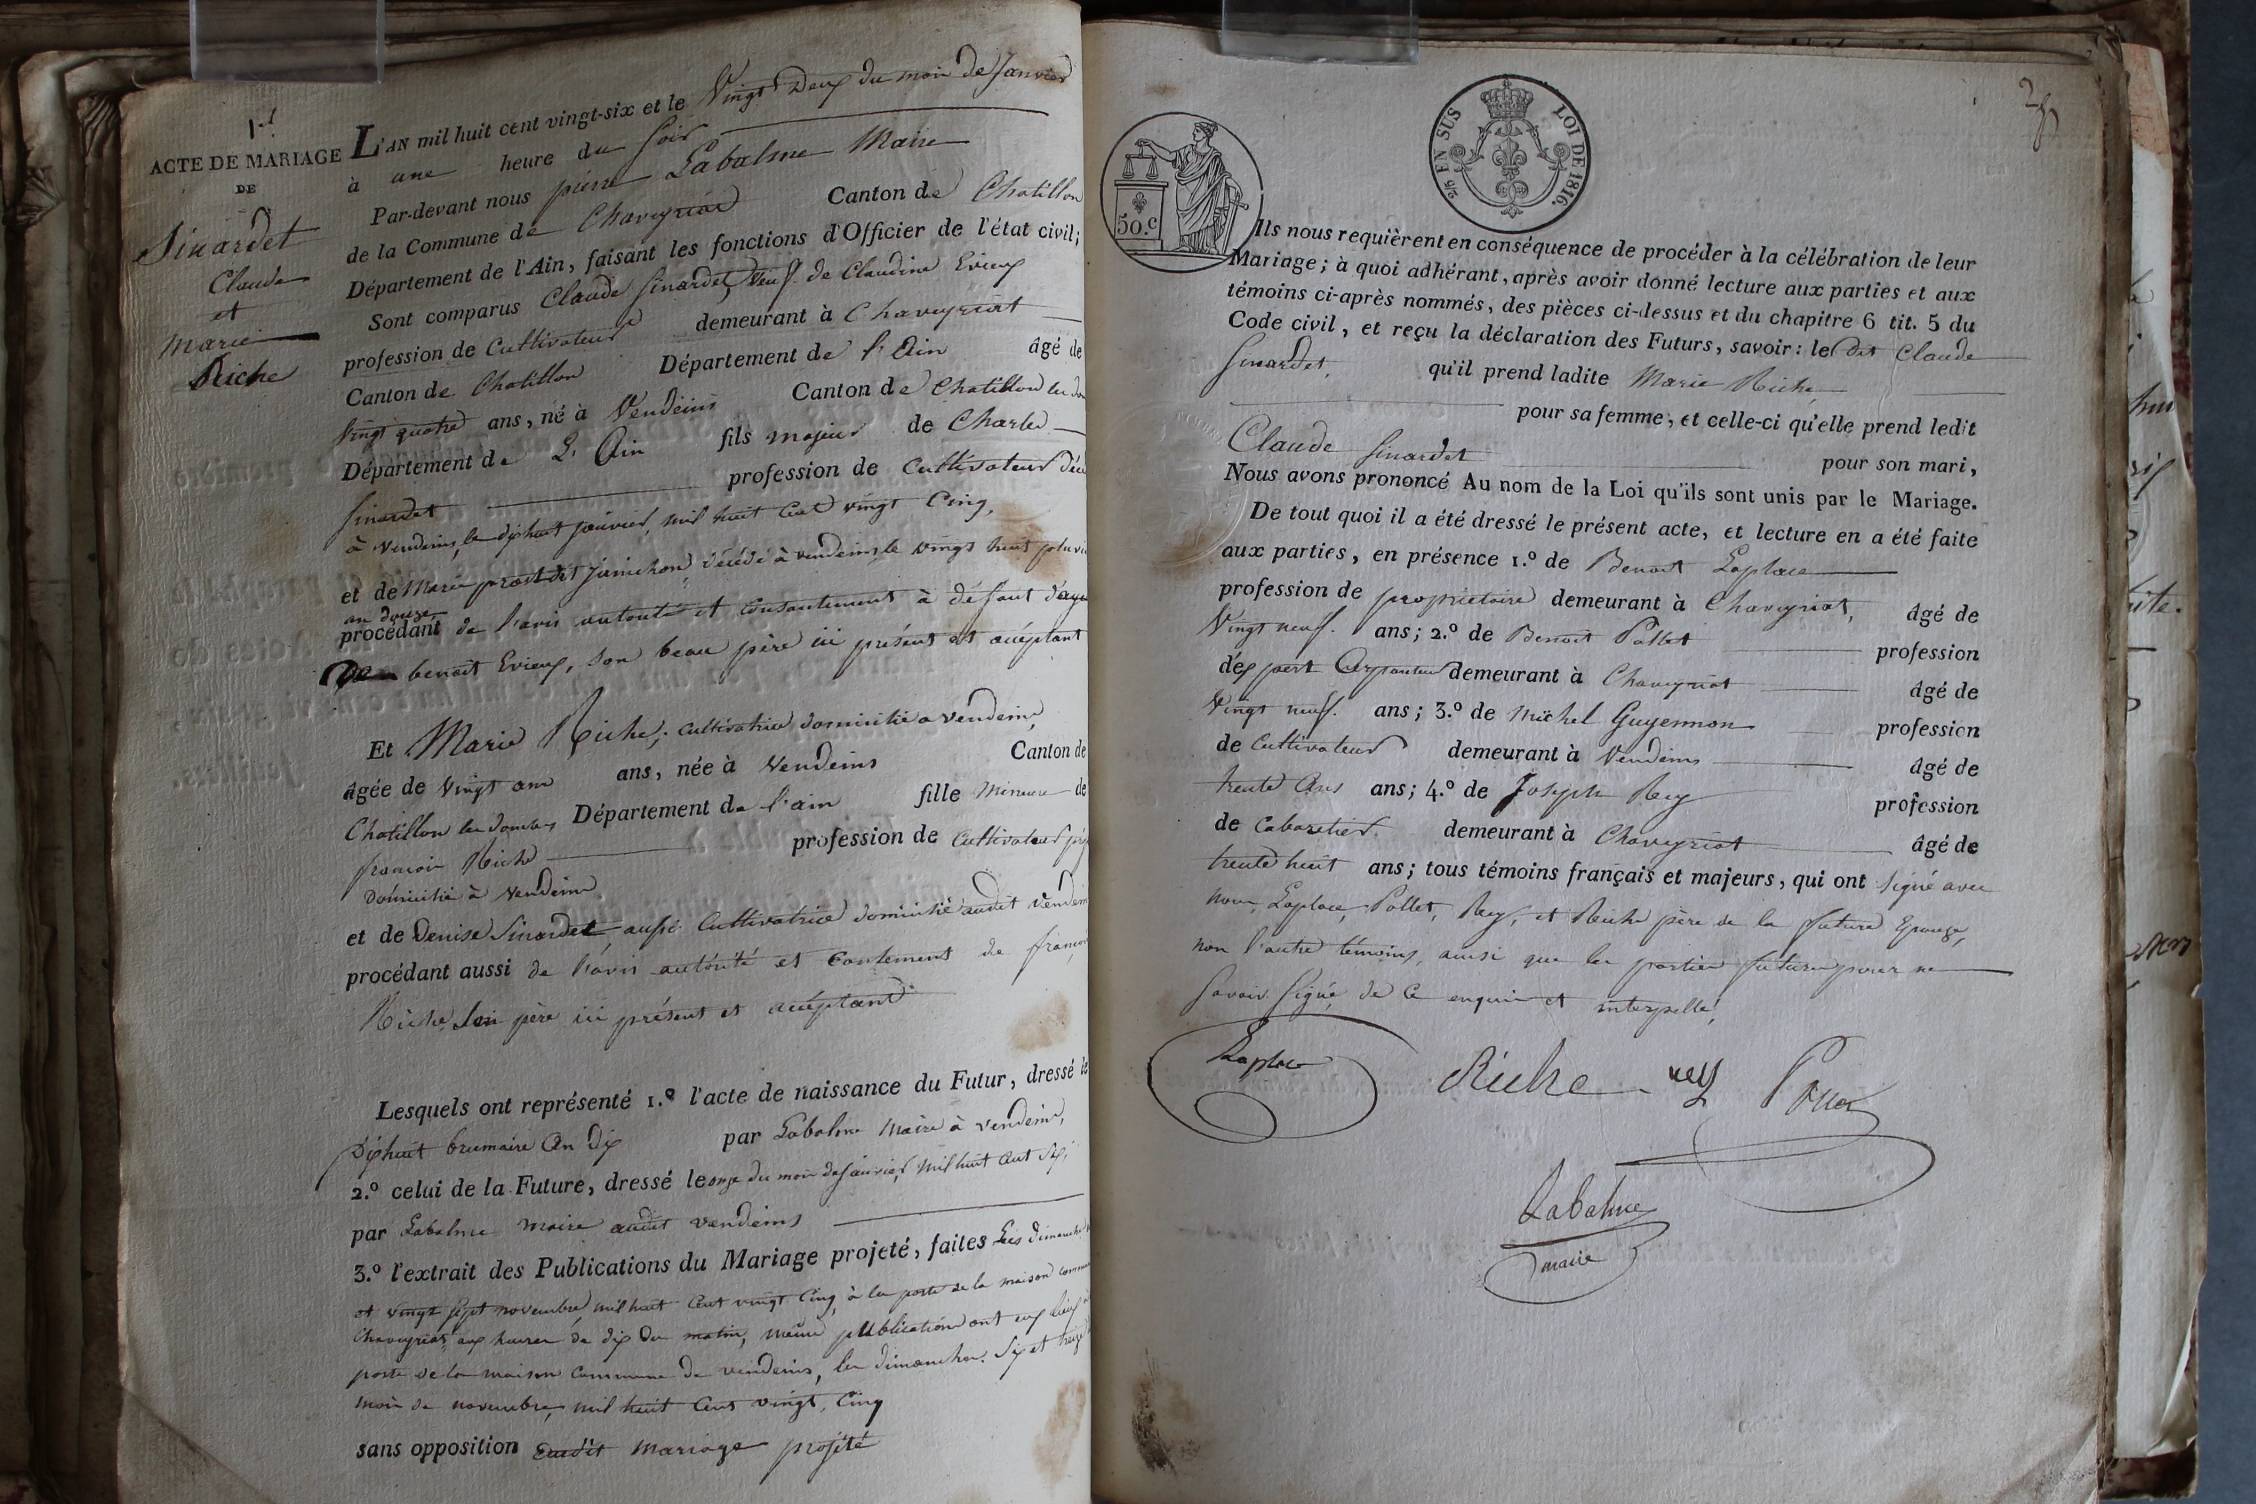 1.
ACTE DE MARIAGE
DE
Sinardet
Claude
et
Marie
Riche
L'AN mil huit cent vingt-six et le Vingt Deux du mois de Janvier
à une heure du soir
Par-devant nous pierre Labalme Maire
de la Commune de Chaveyriat Canton de Chatillon
Département de l'Ain, faisant les fonctions d'Officier de l'état civil;
Sont comparus Claude Sinardet, veuf de Claudine Evieux
profession de Cultivateur demeurant à Chaveyriat
Canton de Chatillon Département de l'Ain âgé de
Vingt quatre ans, né à Vendeins Canton de Chatillon les
Département de L'Ain fils majeur de Charles
Sinardet profession de Cultivateur
à Vendeins, le dixhuit janvier, mil huit Cent vingt Cinq,
et de Marie prost dit Janichon, décédé à vendeins le vingt huit
an douze
procédant de l'avis autorité et consentement à défaut
De benoit Evieux, son beau père ici présent et acceptant
Et Marie Riche, cultivatrice domicilié a vendeins
âgée de vingt ans ans, née à Vendeins Canton de
Chatillon les dombes Département de l'ain fille Mineure de
francois Riche profession de Cultivateur
Domicilié à Vendeins
et de Denise Sinardet, aussi Cultivatrice domicilié audit Vendeins
procédant aussi de l'avis autorité et de
Riche, son père ici présent et acceptant
Lesquels ont représenté 1.º l'acte de naissance du Futur, dressé le
Dixhuit brumaire An Dix par Labalme Maire à vendeins,
2.º celui de la Future, dressé le onze du mois de Janvier, Mil huit Cent Six,
par Labalme maire audit vendeins
3.º l'extrait des Publications du Mariage projeté, faites Les dimanches
et vingt sept novembre, mil huit Cent vingt Cinq, à la porte de la maison
Chaveyriat, aux heures de dix du matin, même publication ont eux lieux
porte de la maison Commune de vendeins, les dimanches. Six et treize
mois de novembre, mil huit Cent vingt, Cinq
sans opposition audit mariage projété
50.c
2/5 EN SUS LOI DE 1816.
Ils nous requièrent en conséquence de procéder à la célébration de leur
Mariage; à quoi adhérant, après avoir donné lecture aux parties et aux
témoins ci-après nommés, des pièces ci-dessus et du chapitre 6 tit. 5 du
Code civil, et reçu la déclaration des Futurs, savoir: le dit Claude
Sinardet, qu'il prend ladite Marie Riche
pour sa femme, et celle-ci qu'elle prend ledit
Claude Sinardet pour son mari,
Nous avons prononcé Au nom de la Loi qu'ils sont unis par le Mariage.
De tout quoi il a été dressé le présent acte, et lecture en a été faite
aux parties, en présence 1.º de Benoit Laplace
profession de propriétaire demeurant à Chaveyriat, âgé de
Vingt neuf. ans; 2.º de Benoit Pollet profession
d'expert Arpenteur demeurant à Chaveyriat âgé de
Vingt neuf. ans; 3.º de Michel Guyennon profession
de Cultivateur demeurant à Vendeins âgé de
trente Ans ans; 4.º de Joseph Rey profession
de Cabaretier demeurant à Chaveyriat âgé de
trente huit ans; tous témoins français et majeurs, qui ont signé avec
nous, Laplace, Pollet, Rey, et Riche père de la future Epouse,
non l'autre témoins, ainsi que les parties future pour ne
savoir signé, de Ce enquis et interpellé,
Laplace Riche rey Pollet
Labalme
maire